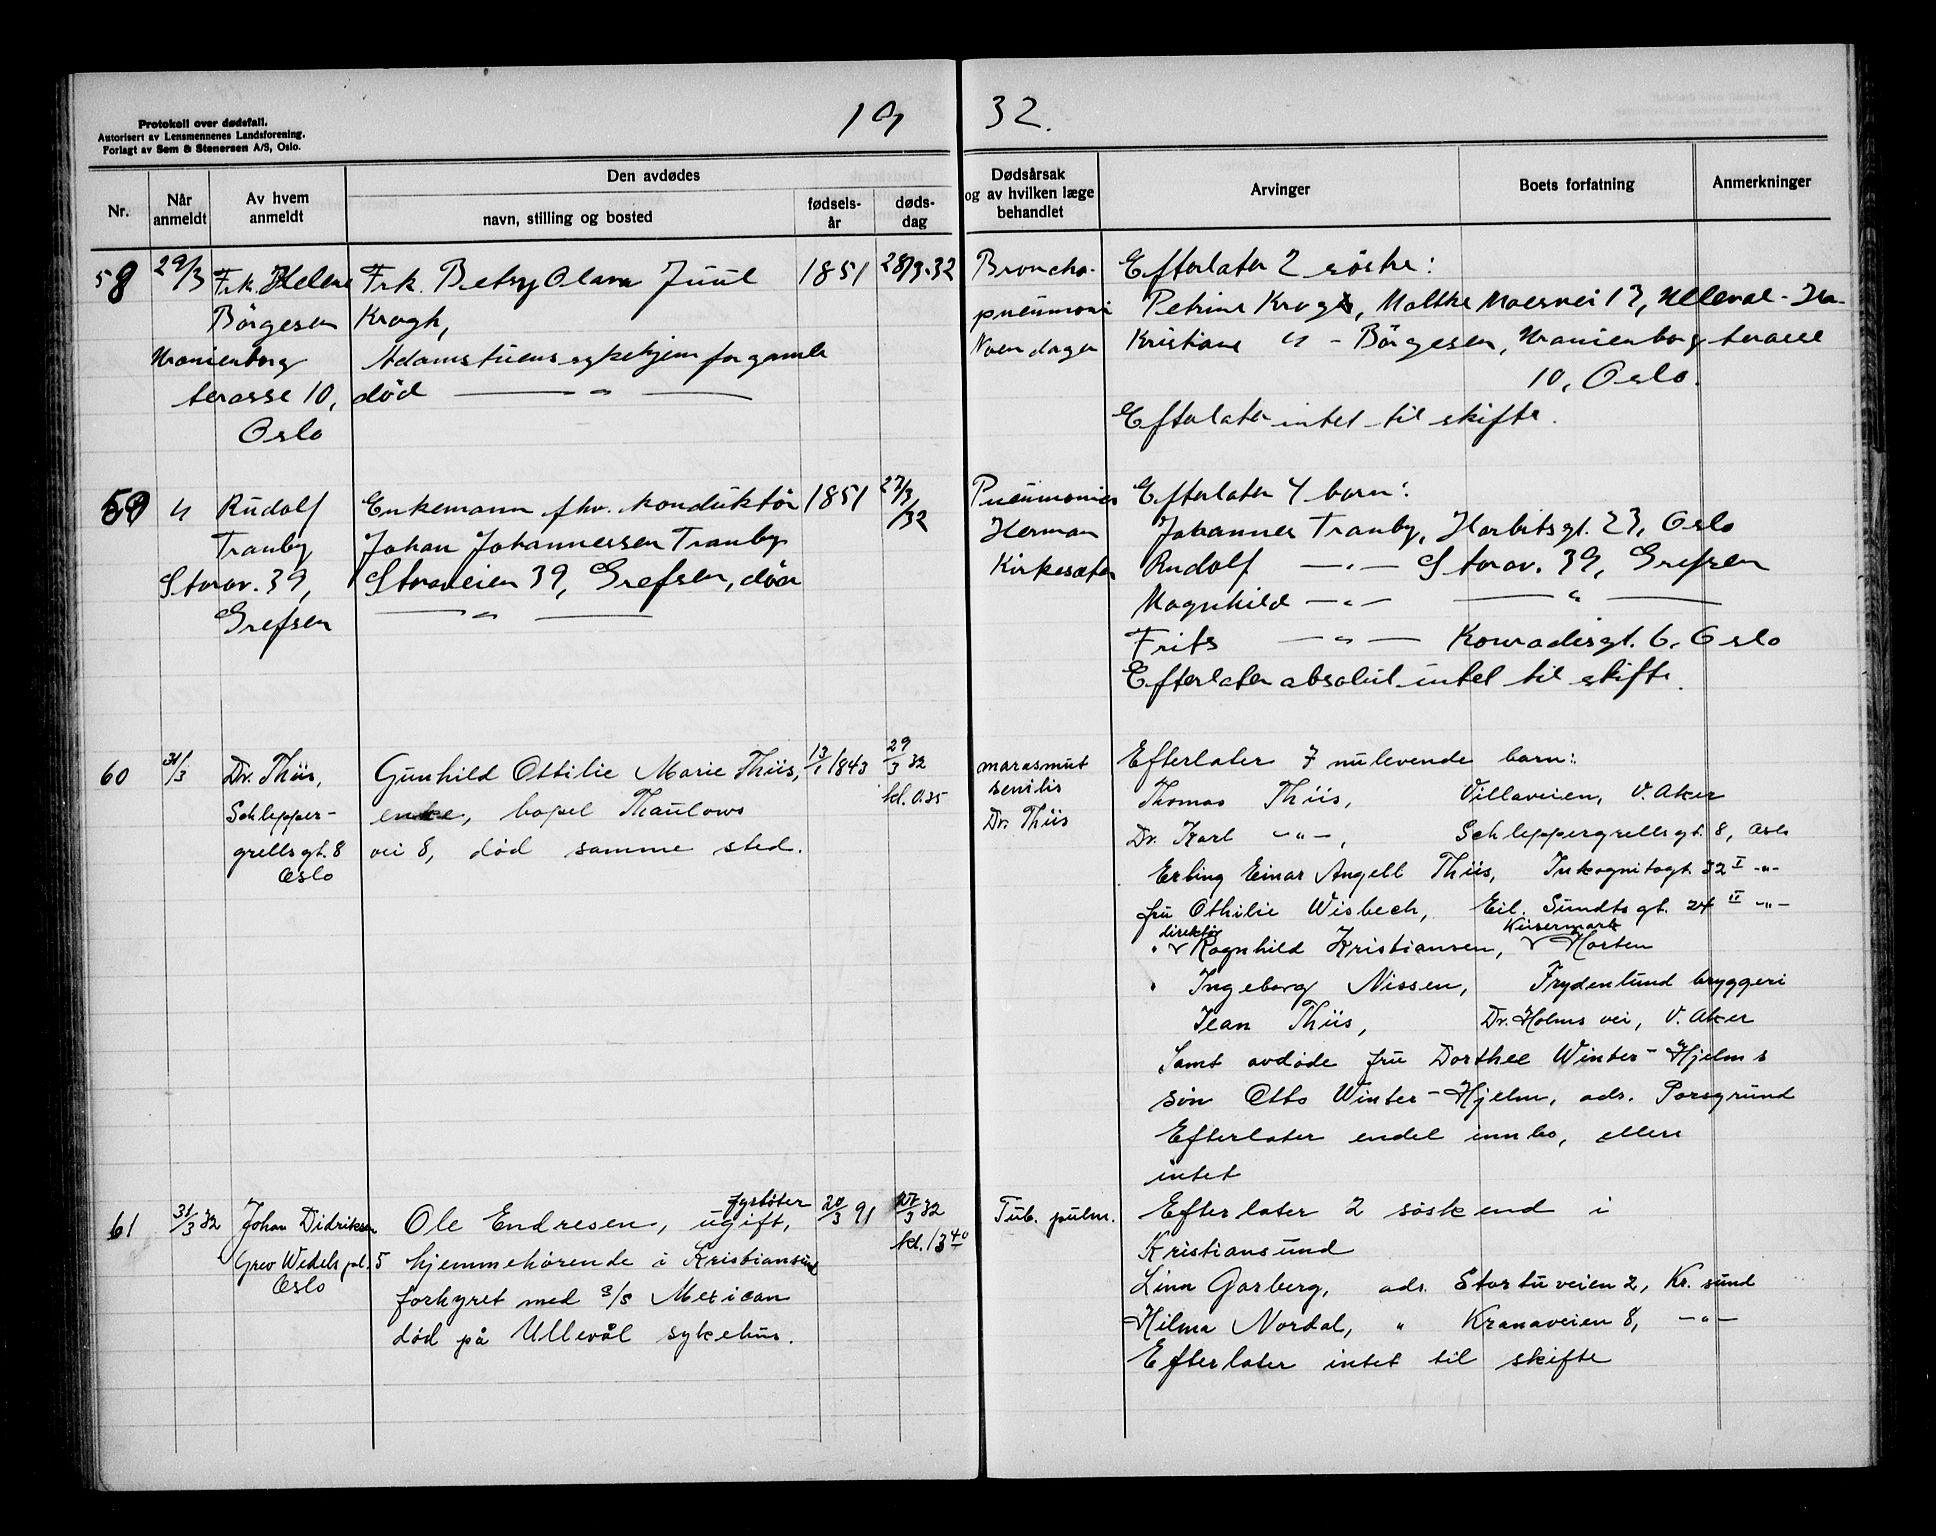 Protokoll over dødsfall.
Autorisert av Lensmennenes Landsforening.
Forlagt av Sem & Stenersen A/S, Oslo.
19 32.
Nr.
Når anmeldt
Av hvem anmeldt
Den avdødes
navn, stilling og bosted
fødsels-år
døds-dag
Dødsårsak og av hvilken læge behandlet
Arvinger
Boets forfatning
Anmerkninger
58
29/3
Frk. Helene
Börgesen
Uranienborg
terasse 10,
Oslo
Frk. Betsy Olava Juul
Krogh,
Adamstuens sykehjem for gamle
død — " —
1851
28/3-32
Broncho-
pneumoni
Noen dager
Efterlater 2 söstre:
Petrine Krogh, Malthe Moesvei 17, Ulleval-Ha-
Kristiane " - Börgesen, Uranienborg terasse
10, Oslo.
Efterlater intet til skifte.
59
"
Rudolf
Tranby
Storov. 39,
Grefsen
Enkemann fhv. konduktör
Johan Johannessen Tranby
Storoveien 39, Grefsen, död
— " —
1851
27/3
/32
Pneumonier
Herman
Kirkesæter
Efterlater 4 barn:
Johannes Tranby, Harbitsgt. 23, Oslo
Rudolf — " — Storov. 39, Grefsen
Magnhild — " — — " —
Frits — " — Konradisgt. 6, Oslo
Efterlater absolut intet til skifte.
60
31/3
Dr. Thiis,
Schlepper-
grellsgt. 8
Oslo
Gunhild Ottilie Marie Thiis,
enke, bopel Thaulows
vei 8, død samme sted.
13/1 1843
29/3 32
kl. 0.35
marasmut
senilis
Dr. Thiis
Efterlater 7 nulevende barn:
Thomas Thiis, Villaveien, V. Aker
Dr. Karl -"-, Schleppergrellsgt. 8, Oslo
Erling Einar Angell Thiis, Inkognitogt. 32 I -"-
fru Othilie Wisbech, Eil. Sundtsgt. 24 II -"-
direktør
" v Ragnhild Kristiansen, v Horten
" Ingeborg Nissen, Frydenlund bryggeri
Jean Thiis, Dr. Holms vei, V. Aker
Samt avdøde fru Dorthee Winter-Hjelms
søn Otto Winter-Hjelm, adr. Porsgrund
Efterlater endel innbo, ellers
intet
61
31/3 32
Johan Didriksen
Grev Wedels pl. 5
Oslo
fyrbøter
Ole Endresen, ugift,
hjemmehørende i Kristiansund
forhyret med s/s Mexican
død på Ullevål sykehus.
20/3 91
/3 32
kl. 13 40
Tub. pulm.
Efterlater 2 søskend i
Kristiansund
Linn Garberg, adr. Stortuveien 2, Kr. sund
Hilma Nordal, " Kranaveien 8, -"-
Efterlater intet til skifte